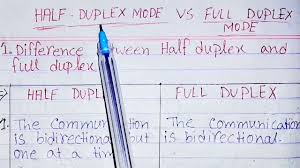 HALF-DUPLEX MODE VS FULL DUPLEX
MODE
1. Difference between Half duplex and
full duplex
HALF DUPLEX FULL DUPLEX
1. The communication The communication
is bidirectional but is bidirectional.
one at a time